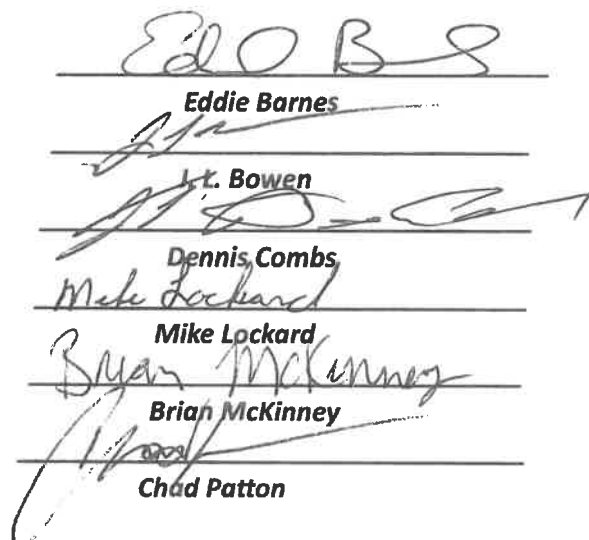 Eddie Barnes
J.t. Bowen
Dennis Combs
Mike Lockard
Mike Lockard
Brian McKinney
Brian McKinney
Chad Patton